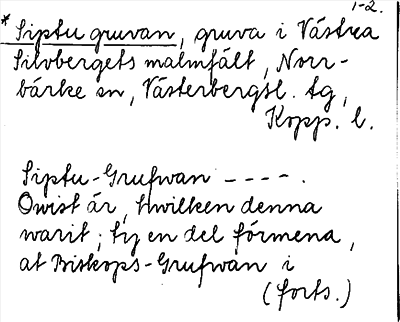 1-2.
* Siptu gruvan, gruva i Västra
Silvbergets malmfält, Norr-
bärke sn, Västerbergsl. tg,
Kopp. l.
Siptu-Grufwan ----.
Owist är, hwilken denna
warit; ty en del förmena,
at Biskops-Grufwan i
(forts.)